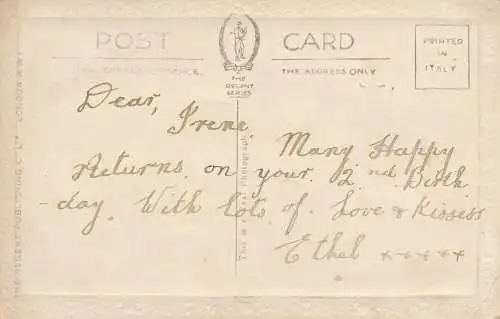 POST CARD
PRINTED IN ITALY
FOR CORRESPONDENCE.
THE REGENT SERIES
THE ADDRESS ONLY
Dear,
Irene.
Many Happy
returns on your 2nd Birth
-day. With lots of Love & Kississ
Ethel xxxxx
This is a Real Photograph
THE REGENT PUBLISHING Co Ltd LONDON N.W.1